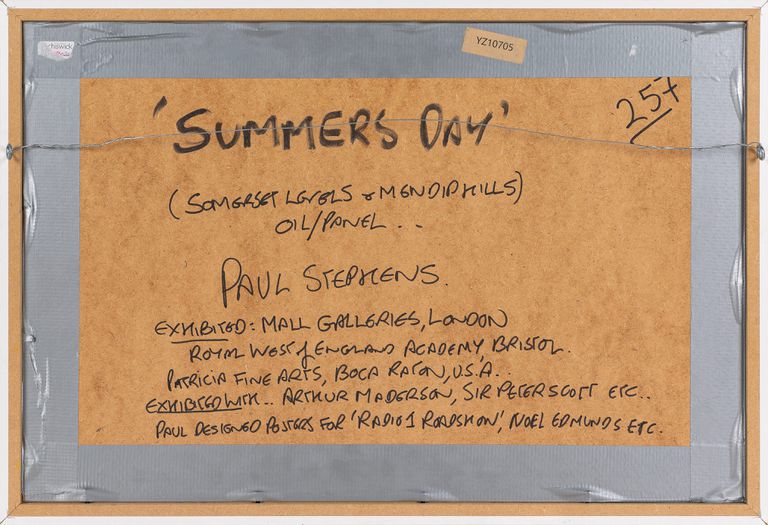 chiswick
YZ10705
257
'SUMMERS DAY'
(SOMERSET LEVELS & MENDIP HILLS)
OIL/PANEL . .
PAUL STEPHENS.
EXHIBITED: MALL GALLERIES, LONDON
ROYAL WEST of ENGLAND ACADEMY, BRISTOL.
PATRICIA FINE ARTS, BOCA RATON, U.S.A. .
EXHIBITED WITH . . ARTHUR MADERSON, SIR PETER SCOTT ETC. .
PAUL DESIGNED POSTERS FOR 'RADIO 1 ROADSHOW', NOEL EDMUNDS ETC.